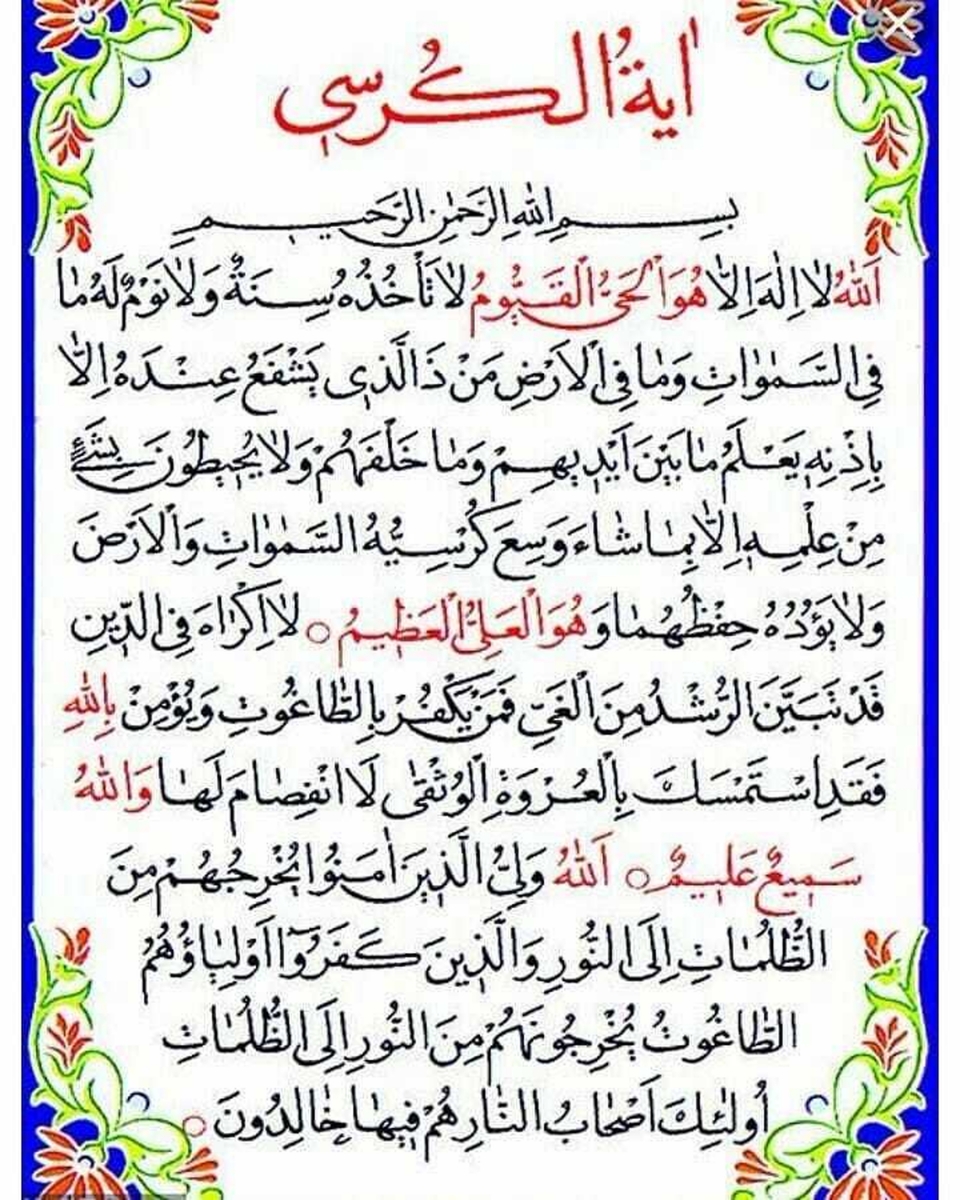 اٰیةُ الکُرسي
بِسمِ اللهِ الرَّحمٰنِ الرَّحیمِ
اَللهُ لٰا اِلٰهَ اِلَّا هُوَ الْحَيُّ الْقَیُّومُ لٰا تَأْخُذُهُ سِنَةٌ وَ لٰا نَوْمٌ لَهُ مٰا
فِی السَّمٰوٰاتِ وَ مٰا فِی الْاَرْضِ مَنْ ذَا الَّذي یَشْفَعُ عِنْدَهُ اِلّٰا
بِاِذْنِهِ یَعْلَمُ مٰا بَیْنَ اَیْدیهِمْ وَ مٰا خَلْفَهُمْ وَ لٰا یُحیطُونَ بِشَيْءٍ
مِنْ عِلْمِهِ اِلّٰا بِمٰا شٰاءَ وَسِعَ کُرْسِیُّهُ السَّمٰوٰاتِ وَ الْاَرْضَ
وَ لٰا یَؤُدُهُ حِفْظُهُمٰا وَ هُوَ الْعَلِيُّ الْعَظیمُ ○ لٰا اِکْرٰاهَ فِی الدّینِ
قَدْ تَبَیَّنَ الرُّشْدُ مِنَ الْغَيِّ فَمَنْ یَکْفُرْ بِالطّٰاغُوتِ وَ یُؤْمِنْ بِاللهِ
فَقَدِ اسْتَمْسَكَ بِالْعُرْوَةِ الْوُثْقٰی لَا انْفِصٰامَ لَهٰا وَ اللهُ
سَمیعٌ عَلیمٌ ○ اَللهُ وَلِيُّ الَّذینَ اٰمَنُوا یُخْرِجُهُمْ مِنَ
الظُّلُمٰاتِ اِلَی النُّورِ وَ الَّذینَ کَفَرُوا اَوْلِیٰاؤُهُمُ
الطّٰاغُوتُ یُخْرِجُونَهُمْ مِنَ النُّورِ اِلَی الظُّلُمٰاتِ
اُولٰئِكَ اَصْحٰابُ النّٰارِ هُمْ فیهٰا خٰالِدُونَ ○